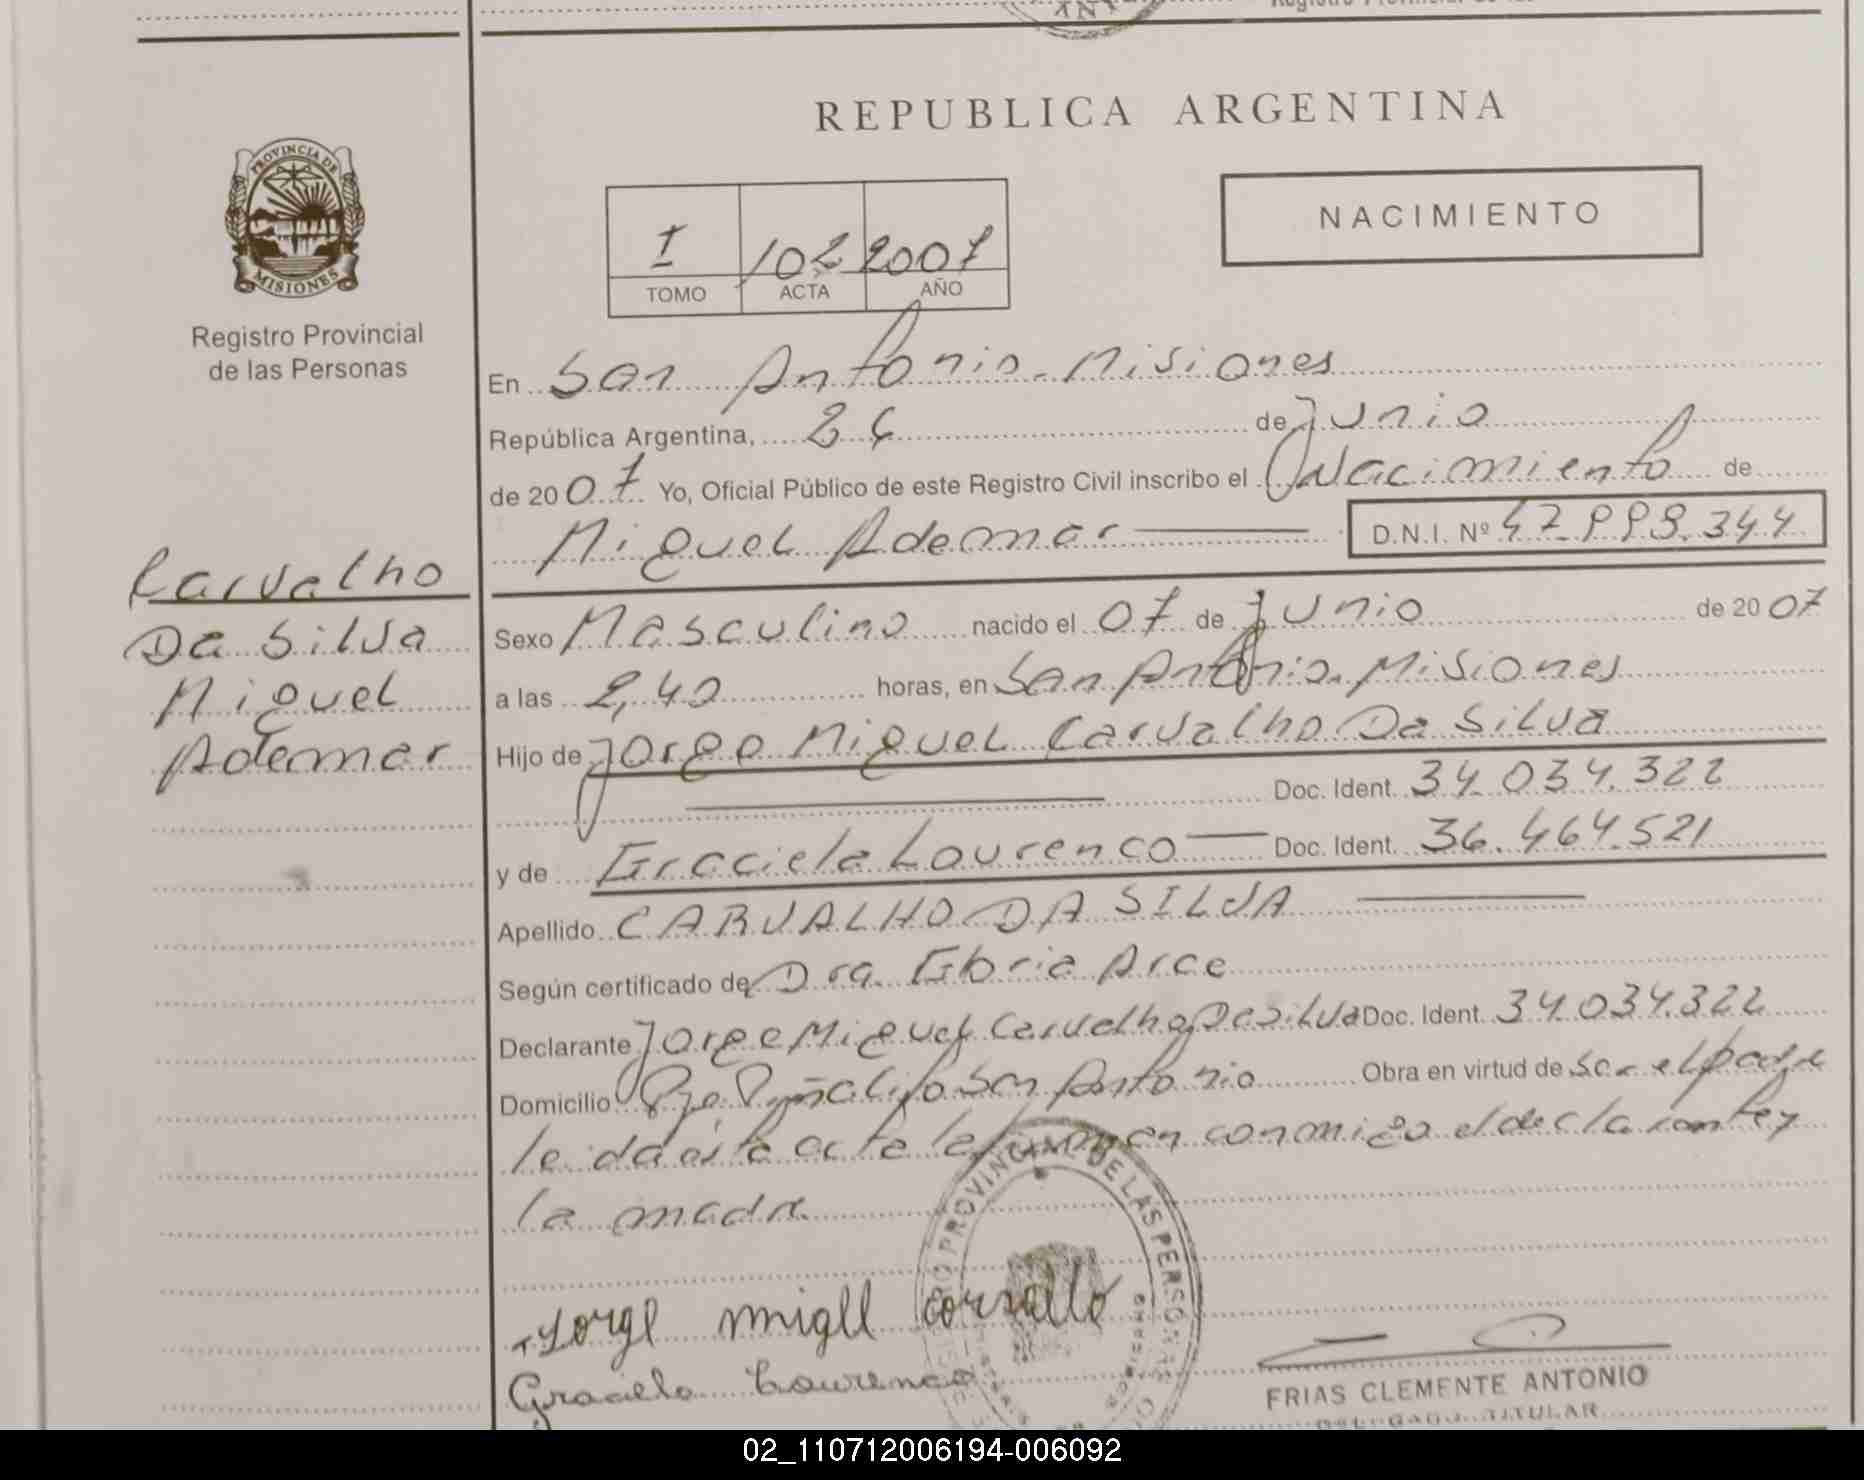 PROVINCIA DE
MISIONES
Registro Provincial
de las Personas
Carvalho
Da Silva
Miguel
Ademar
REPUBLICA ARGENTINA
NACIMIENTO
I 102 2007
TOMO ACTA AÑO
En San Antonio - Misiones
República Argentina, 26 de Junio
de 2007 Yo, Oficial Público de este Registro Civil inscribo el Nacimiento de
Miguel Ademar D.N.I. Nº 47.998.344
Sexo Masculino nacido el 07 de Junio de 2007
a las 2,40 horas, en San Antonio. Misiones
Hijo de Jorge Miguel Carvalho Da Silva
Doc. Ident. 34.034.322
y de Graciela Lourenco Doc. Ident. 36.464.521
Apellido CARVALHO DA SILVA
Según certificado de Dra. Gloria Arce
Declarante Jorge Miguel Carvalho Da Silva Doc. Ident. 34.034.322
Domicilio Pje Piñalito San Antonio Obra en virtud de ser el padre
leida esta acta la firman conmigo el declarante y
la madre
REGISTRO PROVINCIAL DE LAS PERSONAS
Jorge migell corvallo
Graciela Lourenco
FRIAS CLEMENTE ANTONIO
DELEGADO TITULAR
02_110712006194-006092